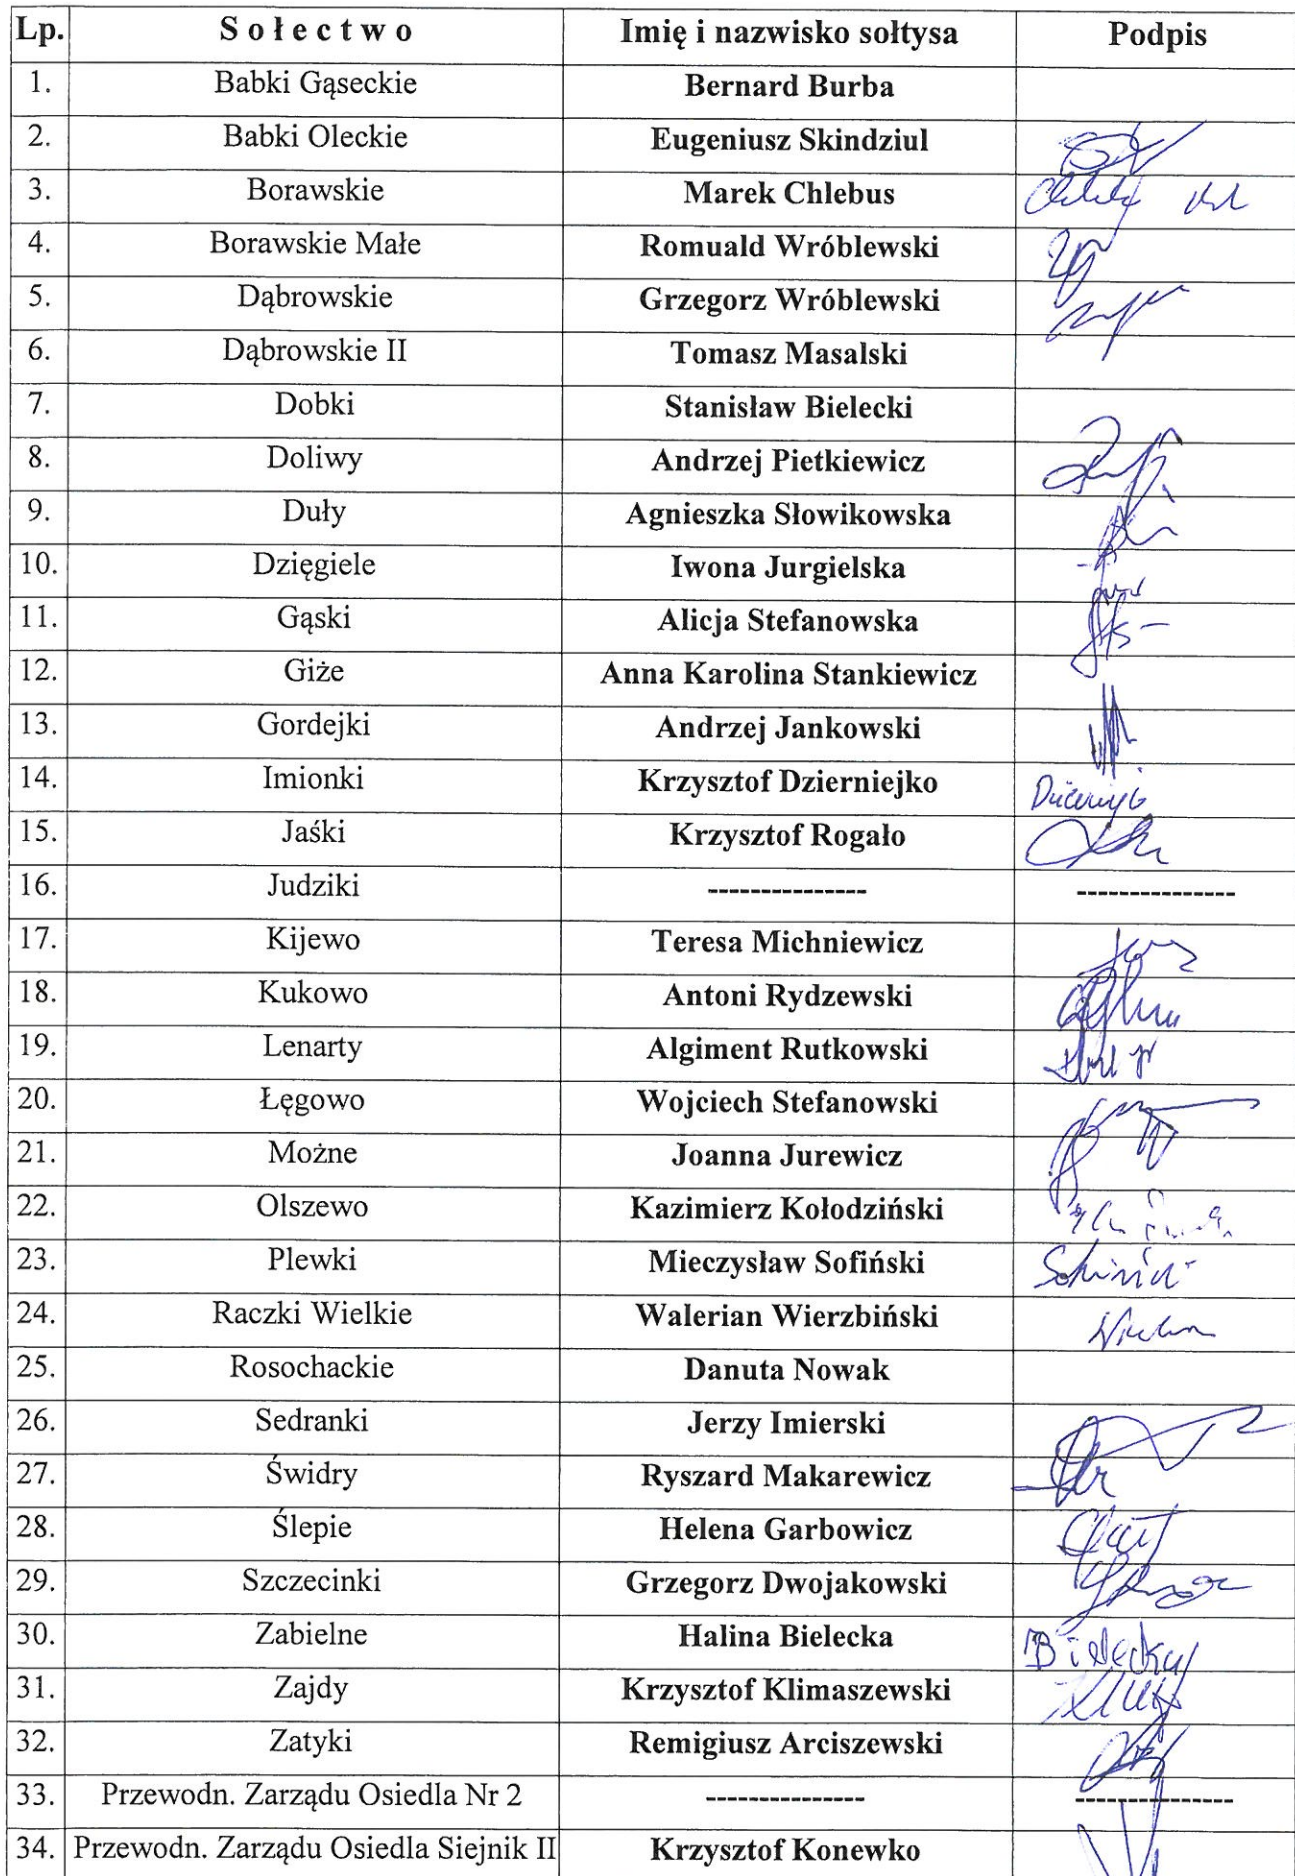 Lp. Sołectwo Imię i nazwisko sołtysa Podpis
1. Babki Gąseckie Bernard Burba
2. Babki Oleckie Eugeniusz Skindziul
3. Borawskie Marek Chlebus
4. Borawskie Małe Romuald Wróblewski
5. Dąbrowskie Grzegorz Wróblewski
6. Dąbrowskie II Tomasz Masalski
7. Dobki Stanisław Bielecki
8. Doliwy Andrzej Pietkiewicz
9. Duły Agnieszka Słowikowska
10. Dzięgiele Iwona Jurgielska
11. Gąski Alicja Stefanowska
12. Giże Anna Karolina Stankiewicz
13. Gordejki Andrzej Jankowski
14. Imionki Krzysztof Dzierniejko
15. Jaśki Krzysztof Rogało
16. Judziki --------------- ---------------
17. Kijewo Teresa Michniewicz
18. Kukowo Antoni Rydzewski
19. Lenarty Algiment Rutkowski
20. Łęgowo Wojciech Stefanowski
21. Możne Joanna Jurewicz
22. Olszewo Kazimierz Kołodziński
23. Plewki Mieczysław Sofiński
24. Raczki Wielkie Walerian Wierzbiński
25. Rosochackie Danuta Nowak
26. Sedranki Jerzy Imierski
27. Świdry Ryszard Makarewicz
28. Ślepie Helena Garbowicz
29. Szczecinki Grzegorz Dwojakowski
30. Zabielne Halina Bielecka Bielecka
31. Zajdy Krzysztof Klimaszewski
32. Zatyki Remigiusz Arciszewski
33. Przewodn. Zarządu Osiedla Nr 2 --------------- ---------------
34. Przewodn. Zarządu Osiedla Siejnik II Krzysztof Konewko